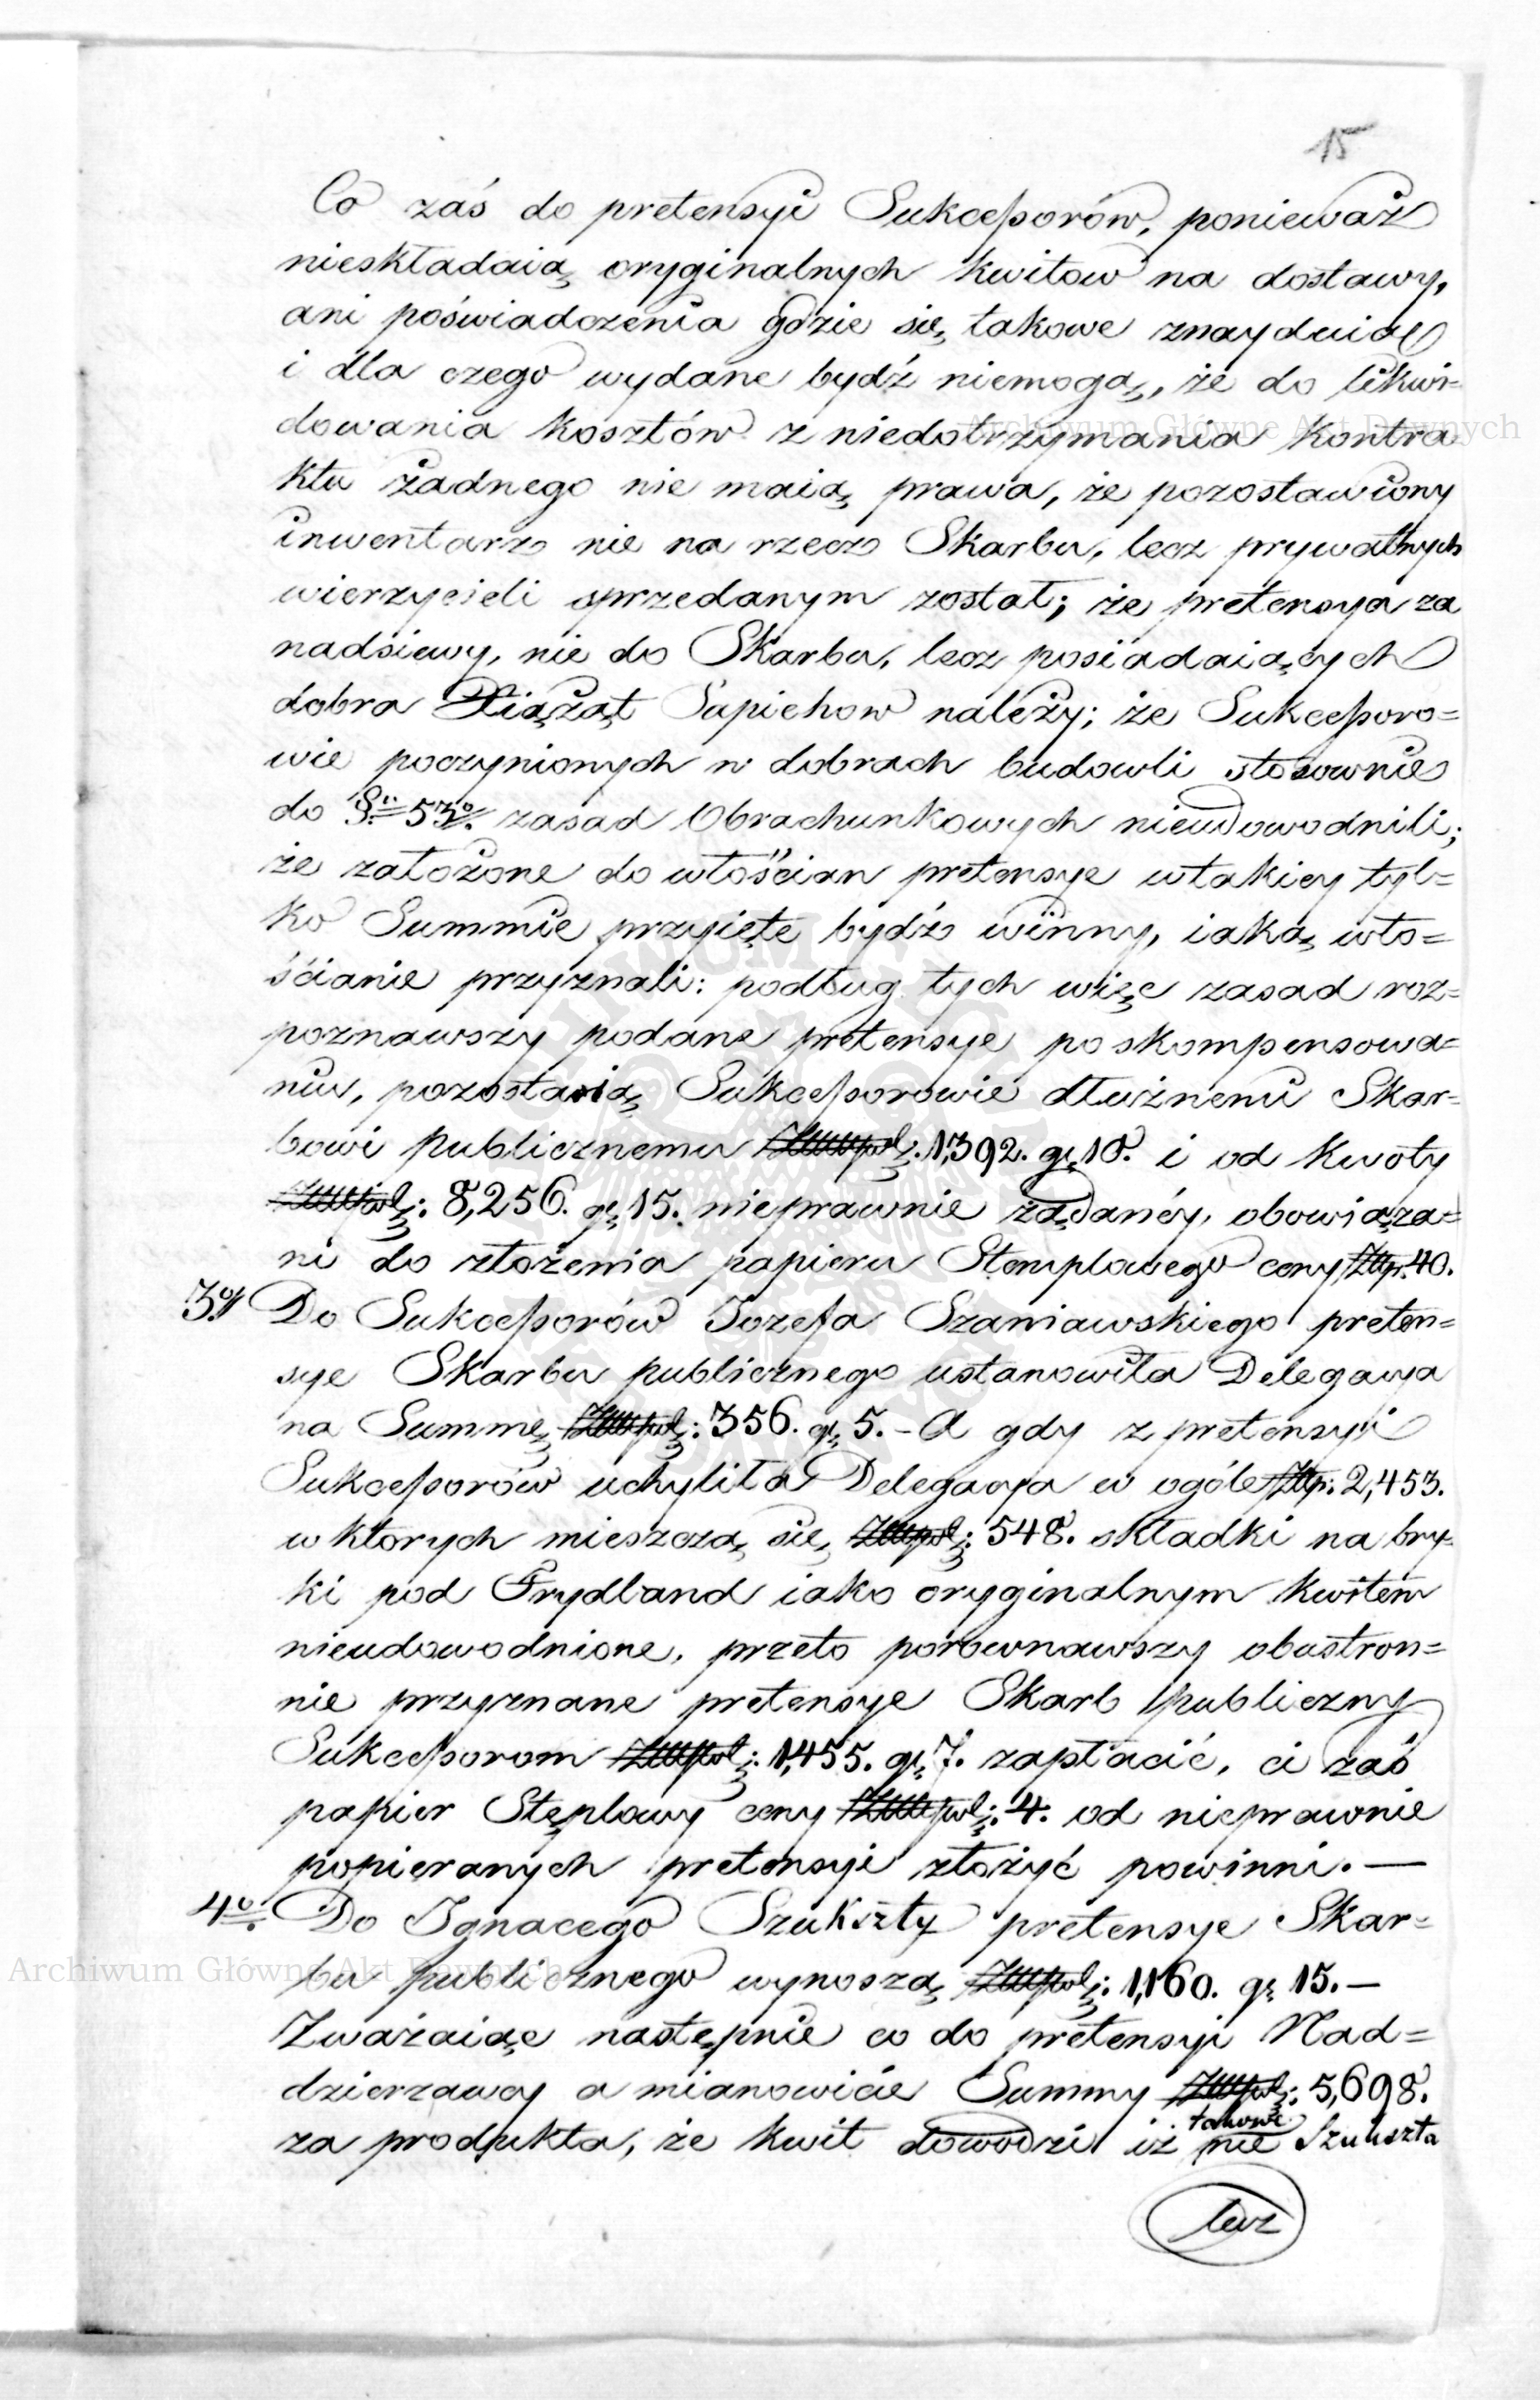 15
Co zaś do pretensyi Sukcessorów, ponieważ
nieskładaią oryginalnych kwitow na dostawy,
ani poświadczenia gdzie się takowe znayduią
i dla czego wydane bydź niemogą, że do likwi=
dowania kosztów z niedotrzymania kontra
ktu żadnego nie maią prawa, że pozostawiony
inwentarz nie na rzecz Skarbu, lecz prywatnych
wierzycieli sprzedanym został; że pretensya za
nadsiewy, nie do Skarbu, lecz posiadaiących
dobra Xiążąt Sapiehow należy; że Sukcessoro=
wie poczynionych w dobrach budowli stosownie
do §u 53o. zasad Obrachunkowych nieudowodnili;
że założone do włościan pretensye w takiey tyl=
ko Summie przyięte bydź winny, iaką wło=
ścianie przyznali: podług tych więc zasad roz=
poznawszy podane pretensye po skompensowa=
niu, pozostaią Sukcessorowie dłużnemi Skar=
bowi publicznemu Złłpol: 1,392. gr 18. i od kwoty
Złłpol: 8,256. gr 15. nieprawnie żądanéy, obowiąza=
ni do złożenia papieru Stemplowego ceny Złłp. 40.
3o Do Sukcessorów Jozefa Szaniawskiego preten=
sye Skarbu publicznego ustanowiła Delegacya
na Summę Złłpol: 356. gr 5. – A gdy z pretensyi
Sukcessorów uchyliła Delegacya w ogóle Złłp: 2,453.
w ktorych mieszczą się Złłpol: 548. składki na bry=
ki pod Frydland iako oryginalnym kwitem
nieudowodnione, przeto porównawszy obustron=
nie przyznane pretensye Skarb publiczny
Sukcessorom Złłpol: 1,455. gr 7. zapłacić, ci zaś
papier Stęplowy ceny Złłpol: 4. od nieprawnie
popieranych pretensyi złożyć powinni. —
4o. Do Ignacego Szukszty pretensye Skar=
bu publicznego wynoszą Złłpol: 1,160. gr 15. —
Zważaiąc następnie co do pretensyi Nad=
dzierzawcy a mianowicie Summy Złłpol: 5,698.
takowe
za produkta, że kwit dowodzi iż nie Szukszta
lecz
Archiwum Główne Akt Dawnych
Archiwum Główne Akt Dawnych